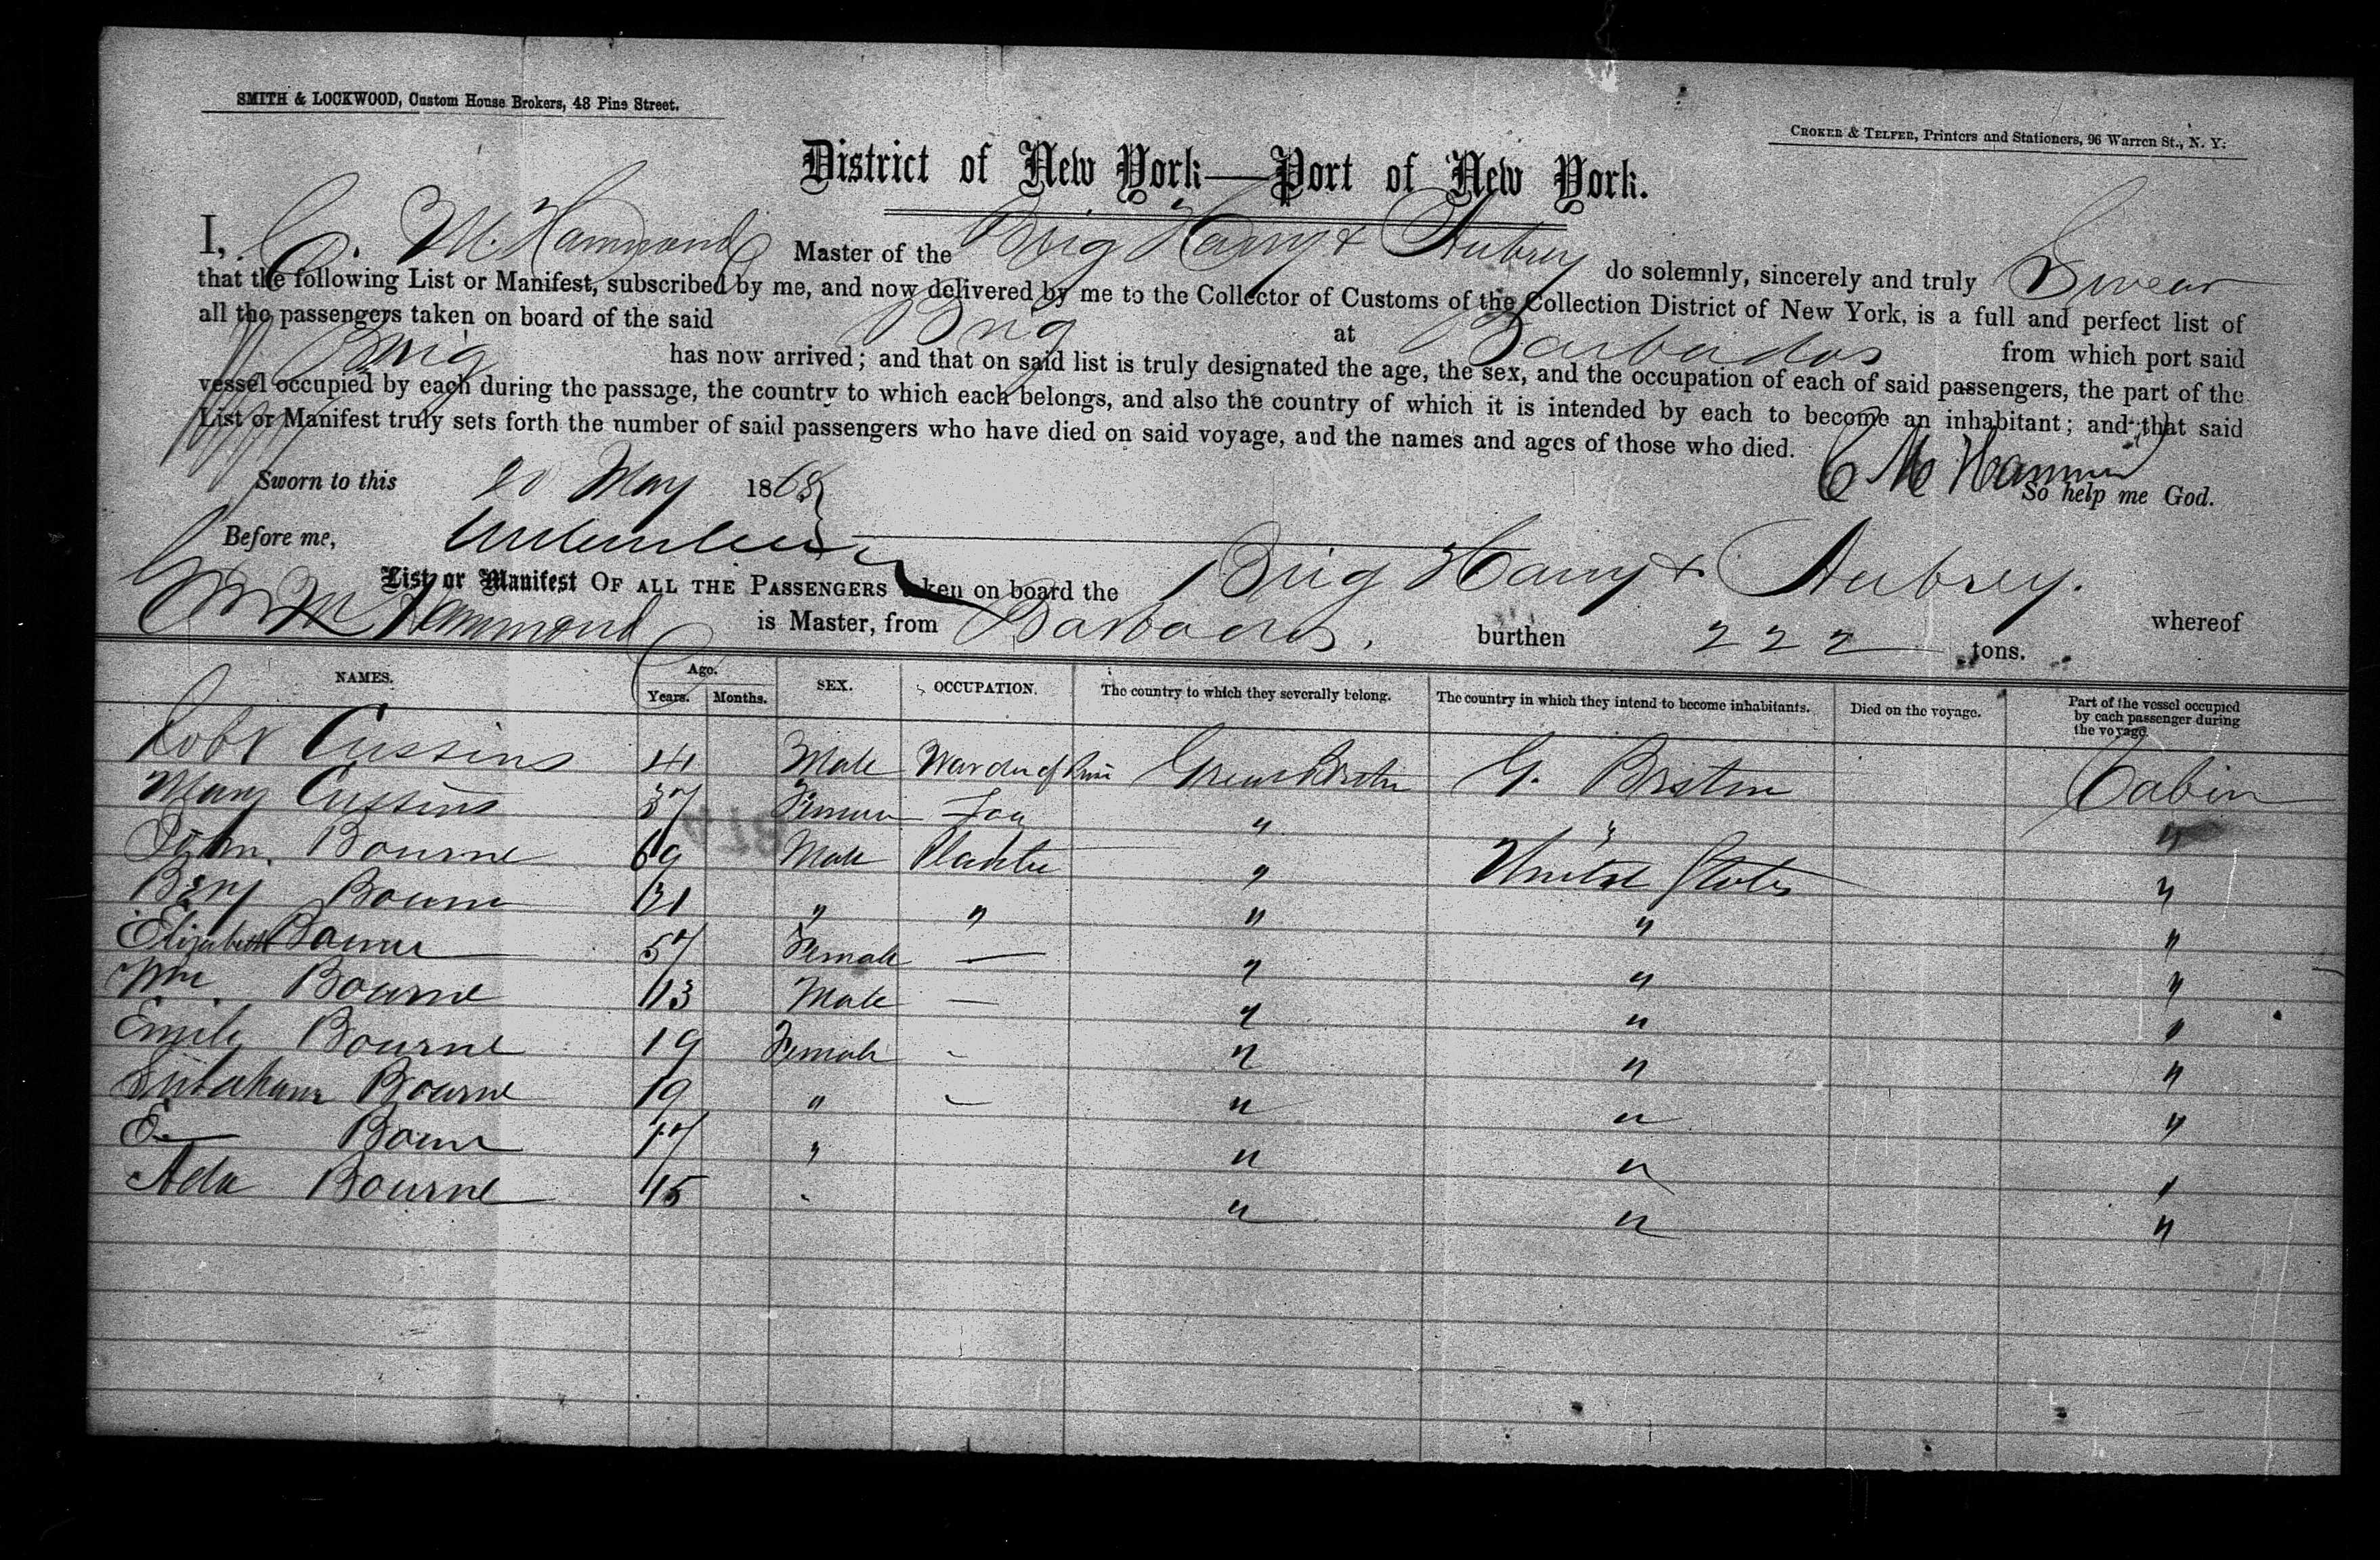 SMITH & LOCKWOOD, Custom House Brokers, 48 Pine Street.
CROKER & TELFER, Printers and Stationers, 96 Warren St., N. Y.
District of New York—Port of New York.
I, C. M. Hammond Master of the Brig Harry & Aubrey do solemnly, sincerely and truly Swear
that the following List or Manifest, subscribed by me, and now delivered by me to the Collector of Customs of the Collection District of New York, is a full and perfect list of
all the passengers taken on board of the said Brig at Barbados from which port said
Brig has now arrived; and that on said list is truly designated the age, the sex, and the occupation of each of said passengers, the part of the
vessel occupied by each during the passage, the country to which each belongs, and also the country of which it is intended by each to become an inhabitant; and that said
List or Manifest truly sets forth the number of said passengers who have died on said voyage, and the names and ages of those who died.
C M Hammond
Sworn to this 20 May 1868 So help me God.
Before me,
List or Manifest OF ALL THE PASSENGERS taken on board the Brig Harry & Aubrey. whereof
M Hammond is Master, from Barbados, burthen 222 tons.
NAMES. Age. Years. Months. SEX. OCCUPATION. The country to which they severally belong. The country in which they intend to become inhabitants. Died on the voyage. Part of the vessel occupied by each passenger during the voyage.
Robt Cussins 41 Male Warden of Great Britain G. Britain Cabin
Mary Cussins 37 " " "
John Bourne 69 Male Planter " United States "
Benj Bourne 31 " " " " "
Elizabeth Bourne 57 Female — " " "
Wm Bourne 13 Male — " " "
Emily Bourne 19 Female - " " "
Bourne 19 " - " " "
E— Bourne 17 " " " "
Ada Bourne 15 " " " "